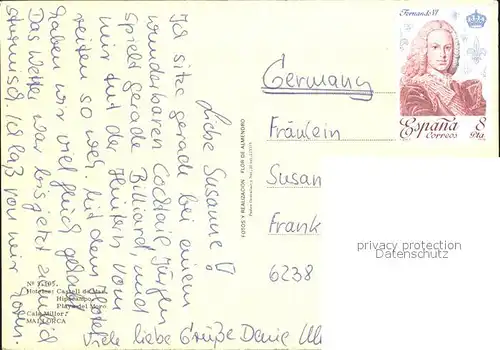 Liebe Susanne!
Ich sitze gerade bei einem
wunderbaren Cocktail. Jürgen
spielt gerade Billiard, und
mir tut der Hintern vom
reiten so weh. Mit dem Hotel
haben wir viel Glück gehabt.
Das Wetter war bis jetzt
stürmisch. Ich laß von mir hören.
Viele liebe Grüße Deine
Germany
Fräulein
Susan
Frank
6238
Fernando VI
España
Correos
8
Pta.
FOTOS Y REALIZACION FLOR DE ALMENDRO
Hoteles: Castell de Mar
Hipocampo
Playa del Moro
Cala Millor
MALLORCA
privacy protection
Datenschutz